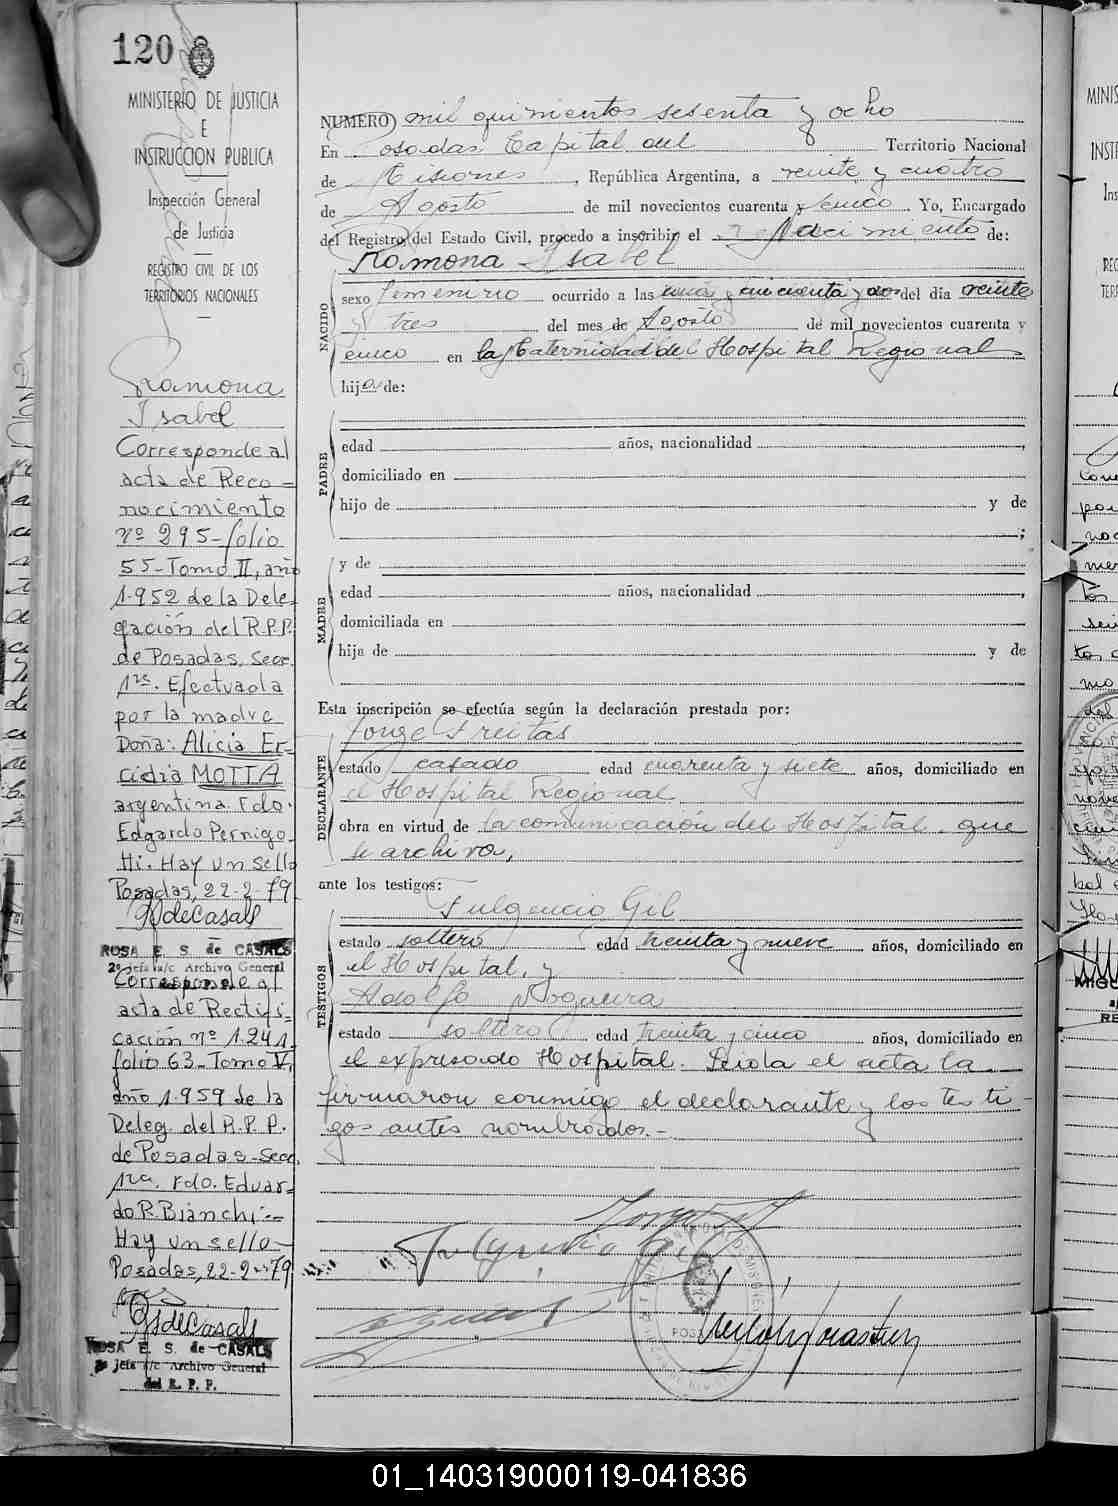 120
MINISTERIO DE JUSTICIA
E
INSTRUCCION PUBLICA
Inspección General
de Justicia
REGISTRO CIVIL DE LOS
TERRITORIOS NACIONALES
Ramona
Isabel
Corresponde al
acta de Reco=
nocimiento
nº 295-folio
55-Tomo II, año
1.952 de la Dele-
gación del R.P.P.
de Posadas, Secc.
1ra. Efectuada
por la madre
Doña: Alicia Er-
cidia MOTTA
argentina. Fdo.
Edgardo Pernigo-
tti. Hay un sello
Posadas, 22-2-79
GSdeCasals
ROSA E. S. de CASALS
2º jefa a/c Archivo General
del R. P. P.
Corresponde al
acta de Rectifi-
cación nº 1.241
folio 63-Tomo V,
año 1.959 de la
Deleg. del R.P.P.
de Posadas-Secc.
1ra. Fdo. Eduar-
do R. Bianchi.-
Hay un sello-
Posadas, 22-2-79
GSdeCasals
ROSA E. S. de CASALS
2º jefa a/c Archivo General
del R. P. P.
NUMERO mil quinientos sesenta y ocho
En Posadas Capital del Territorio Nacional
de Misiones, República Argentina, a veinte y cuatro
de Agosto de mil novecientos cuarenta y cinco. Yo, Encargado
del Registro del Estado Civil, procedo a inscribir el nacimiento de:
Ramona Isabel
NACIDO
sexo femenino ocurrido a las y cincuenta y dos del día veinte
y tres del mes de Agosto de mil novecientos cuarenta y
cinco en la Maternidad del Hospital Regional
hija de:
PADRE
edad años, nacionalidad ,
domiciliado en
hijo de y de
;
MADRE
y de
edad años, nacionalidad ,
domiciliada en
hija de y de
Esta inscripción se efectúa según la declaración prestada por:
Jorge Freitas
DECLARANTE
estado casado edad cuarenta y siete años, domiciliado en
el Hospital Regional
obra en virtud de la comunicación del Hospital, que
se archiva,
ante los testigos:
Fulgencio Gil
TESTIGOS
estado soltero edad treinta y nueve años, domiciliado en
el Hospital, y
Adolfo Nogueira
estado soltero edad treinta y cinco años, domiciliado en
el expresado Hospital. Leida el acta la
firmaron conmigo el declarante y los testi-
gos antes nombrados.-
Fulgencio Gil
01_140319000119-041836